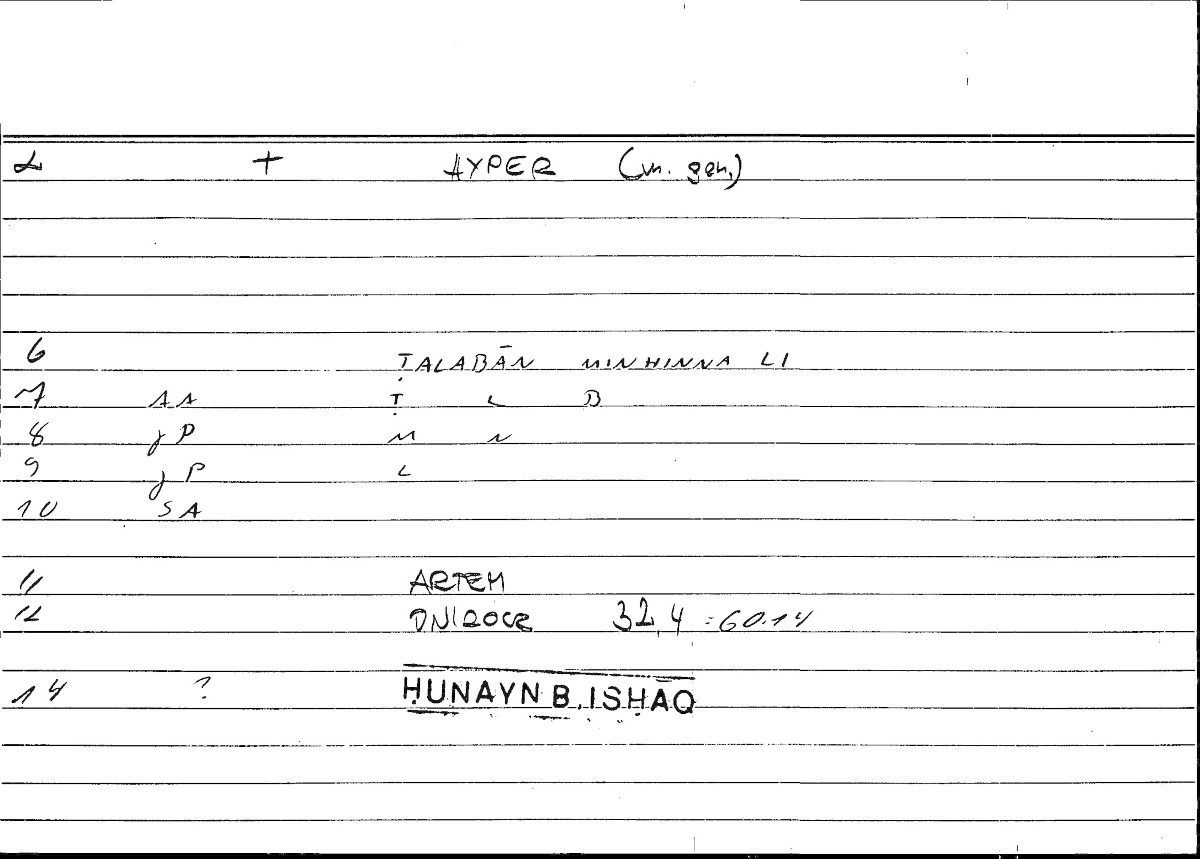 2 + HYPER (m. gen.)
6 ṬALABĀN MINHINNA LI
7 AA Ṭ L B
8 jP M N
9 jP L
10 SA
11 ARTEM
12 ONIROCR 32,4 = 60.14
14 ? ḤUNAYN B. ISḤĀQ